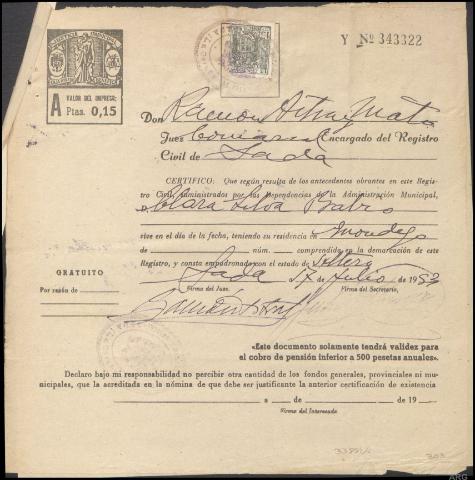 Y Nº 343322
VALOR DEL IMPRESO:
A Ptas. 0,15
Don Ramon
Juez Comarcal Encargado del Registro
Civil de Sada
CERTIFICO: Que según resulta de los antecedentes obrantes en este Regis-
tro Civil, administrados por las Dependencias de la Administración Municipal,
D. Clara Silva
vive en el día de la fecha, teniendo su residencia en Mondego
de núm. comprendida en la demarcación de este
Registro, y consta empadronada con el estado de Soltera
Sada 17 de Julio de 1953
GRATUITO
Por razón de
Firma del Juez.
Firma del Secretario.
«Este documento solamente tendrá validez para
el cobro de pensión inferior a 500 pesetas anuales».
Declaro bajo mi responsabilidad no percibir otra cantidad de los fondos generales, provinciales ni mu-
nicipales, que la acreditada en la nómina de que debe ser justificante la anterior certificación de existencia
a de de 19
Firma del Interesado
303
ARG